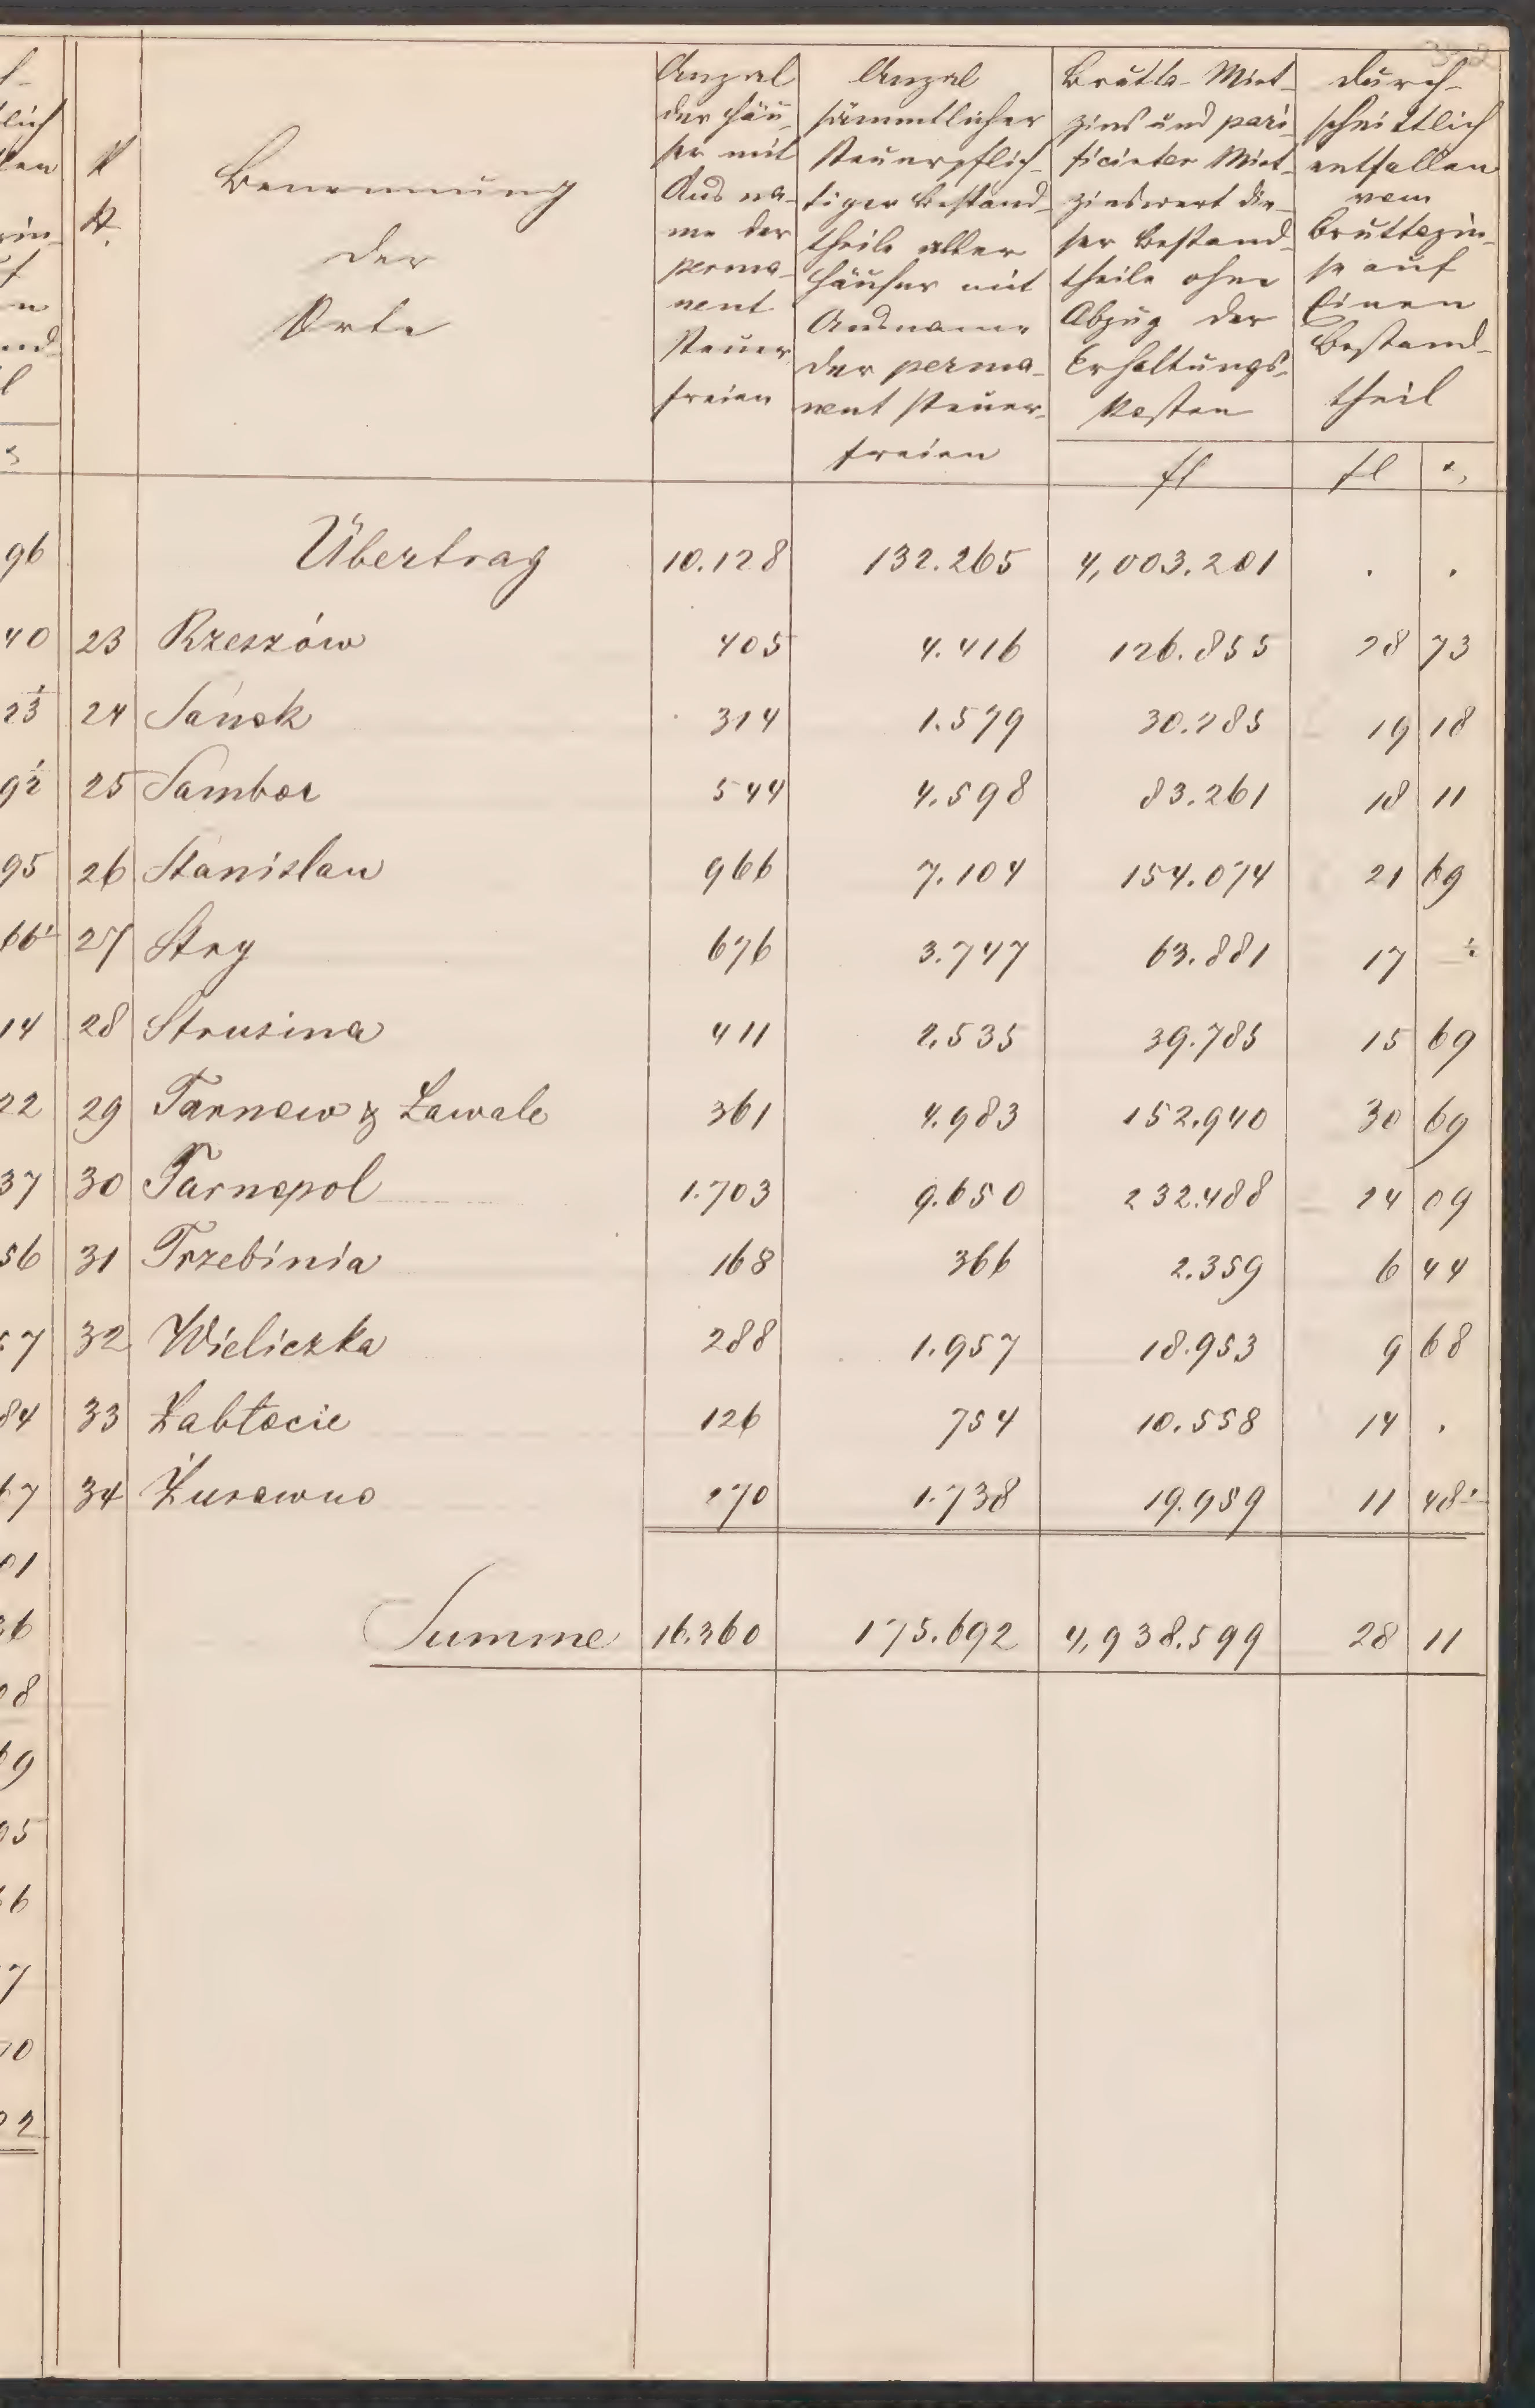 Benennung
der
Orte
Anzal
der Häu-
ser mit
Ausna-
me der
perma-
nent
Steuer
freien
Anzal
sämmtlicher
Steuerpflich-
tiger Bestand-
theile aller
Häuser mit
Ausname
der perma-
nent Steuer-
freien
Brutto-Miet-
zins und pari-
ficirter Miet-
zinswert die-
ser Bestand-
theile ohne
Abzug der
Erhaltungs-
kosten
fl
Durch-
schnittlich
entfallen
vom
Bruttozin-
se auf
Einen
Bestand-
theil
fl
96 Übertrag 10.128 132.265 4,003.201 . .
40 23 Rzeszów 405 4.416 126.855 28 73
24 Sanok 314 1.579 30.285 19 18
25 Sambor 544 4.598 83.261 18 11
95 26 Stanislau 966 7.104 154.074 21 69
27 Stry 676 3.747 63.881 17
14 28 Strusina 411 2.535 39.785 15 69
22 29 Tarnow & Zawale 361 4.983 152.940 30 69
37 30 Tarnopol 1.703 9.650 232.488 24 09
56 31 Trzebinia 168 366 2.359 6 44
32 Wieliczka 288 1.957 18.953 9 68
84 33 Zabłocie 126 754 10.558 14 .
67 34 Żurawno 270 1.738 19.959 11 48
Summe 16.360 175.692 4,938.599 28 11